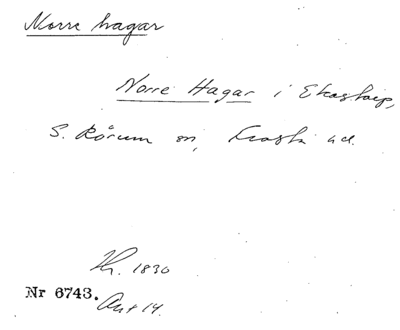 Norre hagar
Norre Hagar i Ekastorp,
S. Rörum sn, Frosta hd.
Kr. 1830
Nr 6743.
Akt 14.